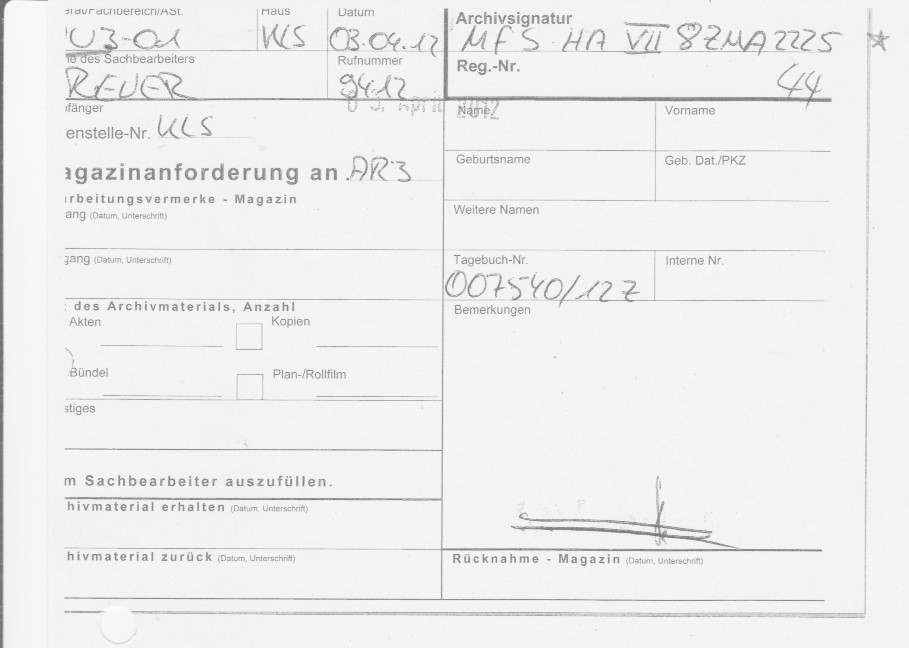 eral/Fachbereich/ASt. Haus Datum
U3-01 KLS 03.04.12
e des Sachbearbeiters Rufnummer
REUER 9412
03. April 2012
fänger
enstelle-Nr. KLS
agazinanforderung an AR3
arbeitungsvermerke - Magazin
ang (Datum, Unterschrift)
gang (Datum, Unterschrift)
des Archivmaterials, Anzahl
Akten Kopien
Bündel Plan-/Rollfilm
stiges
m Sachbearbeiter auszufüllen.
hivmaterial erhalten (Datum, Unterschrift)
hivmaterial zurück (Datum, Unterschrift)
Archivsignatur
MFS HA VII 8 ZMA 2225
Reg.-Nr.
44
Name Vorname
Geburtsname Geb. Dat./PKZ
Weitere Namen
Tagebuch-Nr. Interne Nr.
007540/12 Z
Bemerkungen
Rücknahme - Magazin (Datum, Unterschrift)